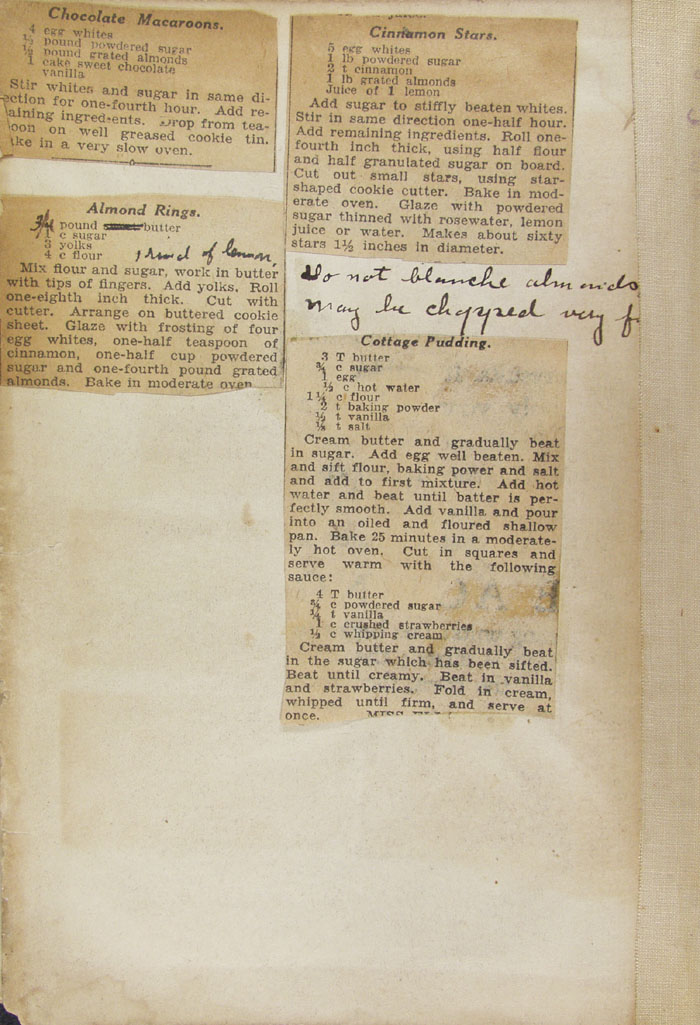 Chocolate Macaroons.
4 egg whites
½ pound powdered sugar
½ pound grated almonds
1 cake sweet chocolate
vanilla
Stir whites and sugar in same di-
ection for one-fourth hour. Add re-
aining ingredients. Drop from tea-
oon on well greased cookie tin.
ke in a very slow oven.
Almond Rings.
3/4 pound butter
1 c sugar
3 yolks
4 c flour 1 rind of lemon.
Mix flour and sugar, work in butter
with tips of fingers. Add yolks. Roll
one-eighth inch thick. Cut with
cutter. Arrange on buttered cookie
sheet. Glaze with frosting of four
egg whites, one-half teaspoon of
cinnamon, one-half cup powdered
sugar and one-fourth pound grated
almonds. Bake in moderate oven
Cinnamon Stars.
5 egg whites
1 lb powdered sugar
2 t cinnamon
1 lb grated almonds
Juice of 1 lemon
Add sugar to stiffly beaten whites.
Stir in same direction one-half hour.
Add remaining ingredients. Roll one-
fourth inch thick, using half flour
and half granulated sugar on board.
Cut out small stars, using star-
shaped cookie cutter. Bake in mod-
erate oven. Glaze with powdered
sugar thinned with rosewater, lemon
juice or water. Makes about sixty
stars 1½ inches in diameter.
Do not blanche almonds
may be chopped very f
Cottage Pudding.
3 T butter
¾ c sugar
1 egg
½ c hot water
c flour
2 t baking powder
½ t vanilla
t salt
Cream butter and gradually beat
in sugar. Add egg well beaten. Mix
and sift flour, baking power and salt
and add to first mixture. Add hot
water and beat until batter is per-
fectly smooth. Add vanilla and pour
into an oiled and floured shallow
pan. Bake 25 minutes in a moderate-
ly hot oven. Cut in squares and
serve warm with the following
sauce:
4 T butter
¾ c powdered sugar
¼ t vanilla
1 c crushed strawberries
c whipping cream
Cream butter and gradually beat
in the sugar which has been sifted.
Beat until creamy. Beat in vanilla
and strawberries. Fold in cream,
whipped until firm, and serve at
once. MISS